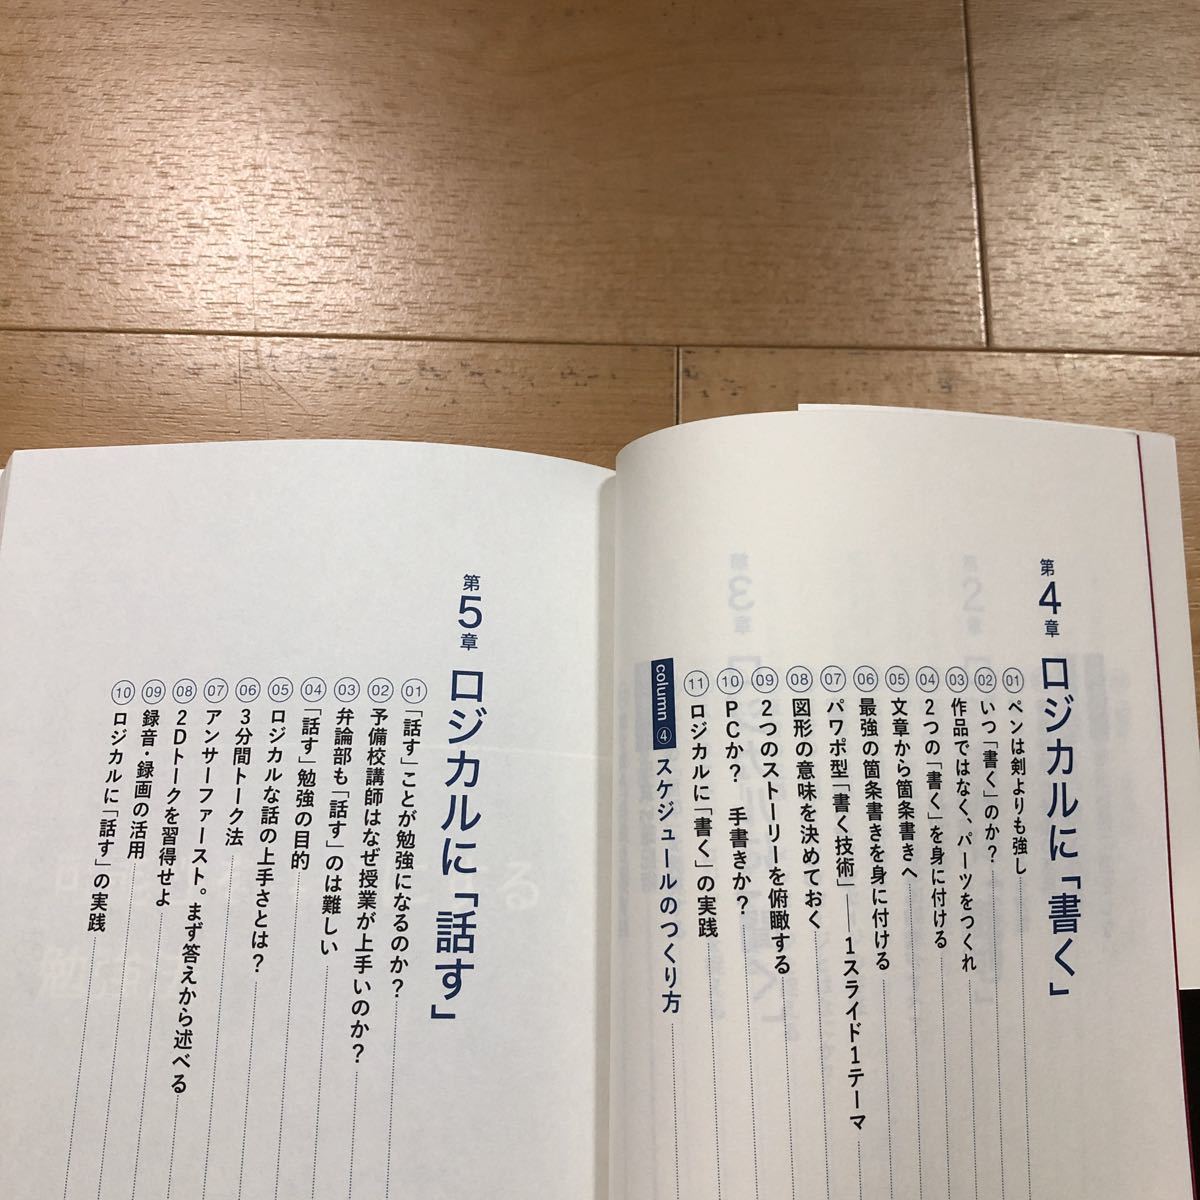 第4章 ロジカルに「書く」
01 ペンは剣よりも強し
02 いつ「書く」のか？
03 作品ではなく、パーツをつくれ
04 2つの「書く」を身に付ける
05 文章から箇条書きへ
06 最強の箇条書きを身に付ける
07 パワポ型「書く技術」――1スライド1テーマ
08 図形の意味を決めておく
09 2つのストーリーを俯瞰する
10 PCか？　手書きか？
11 ロジカルに「書く」の実践
column ④ スケジュールのつくり方
第5章 ロジカルに「話す」
01 「話す」ことが勉強になるのか？
02 予備校講師はなぜ授業が上手いのか？
03 弁論部も「話す」のは難しい
04 「話す」勉強の目的
05 ロジカルな話の上手さとは？
06 3分間トーク法
07 アンサーファースト。まず答えから述べる
08 2Dトークを習得せよ
09 録音・録画の活用
10 ロジカルに「話す」の実践